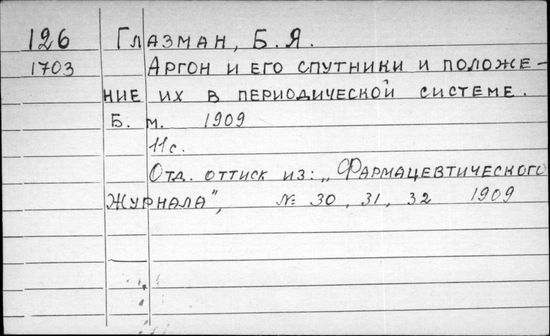 126 Глазман, Б. Я.
1703 Аргон и его спутники и положе-
ние их в периодической системе.
Б. м. 1909
11 с.
Отд. оттиск из: „Фармацевтического
журнала", № 30, 31, 32 1909